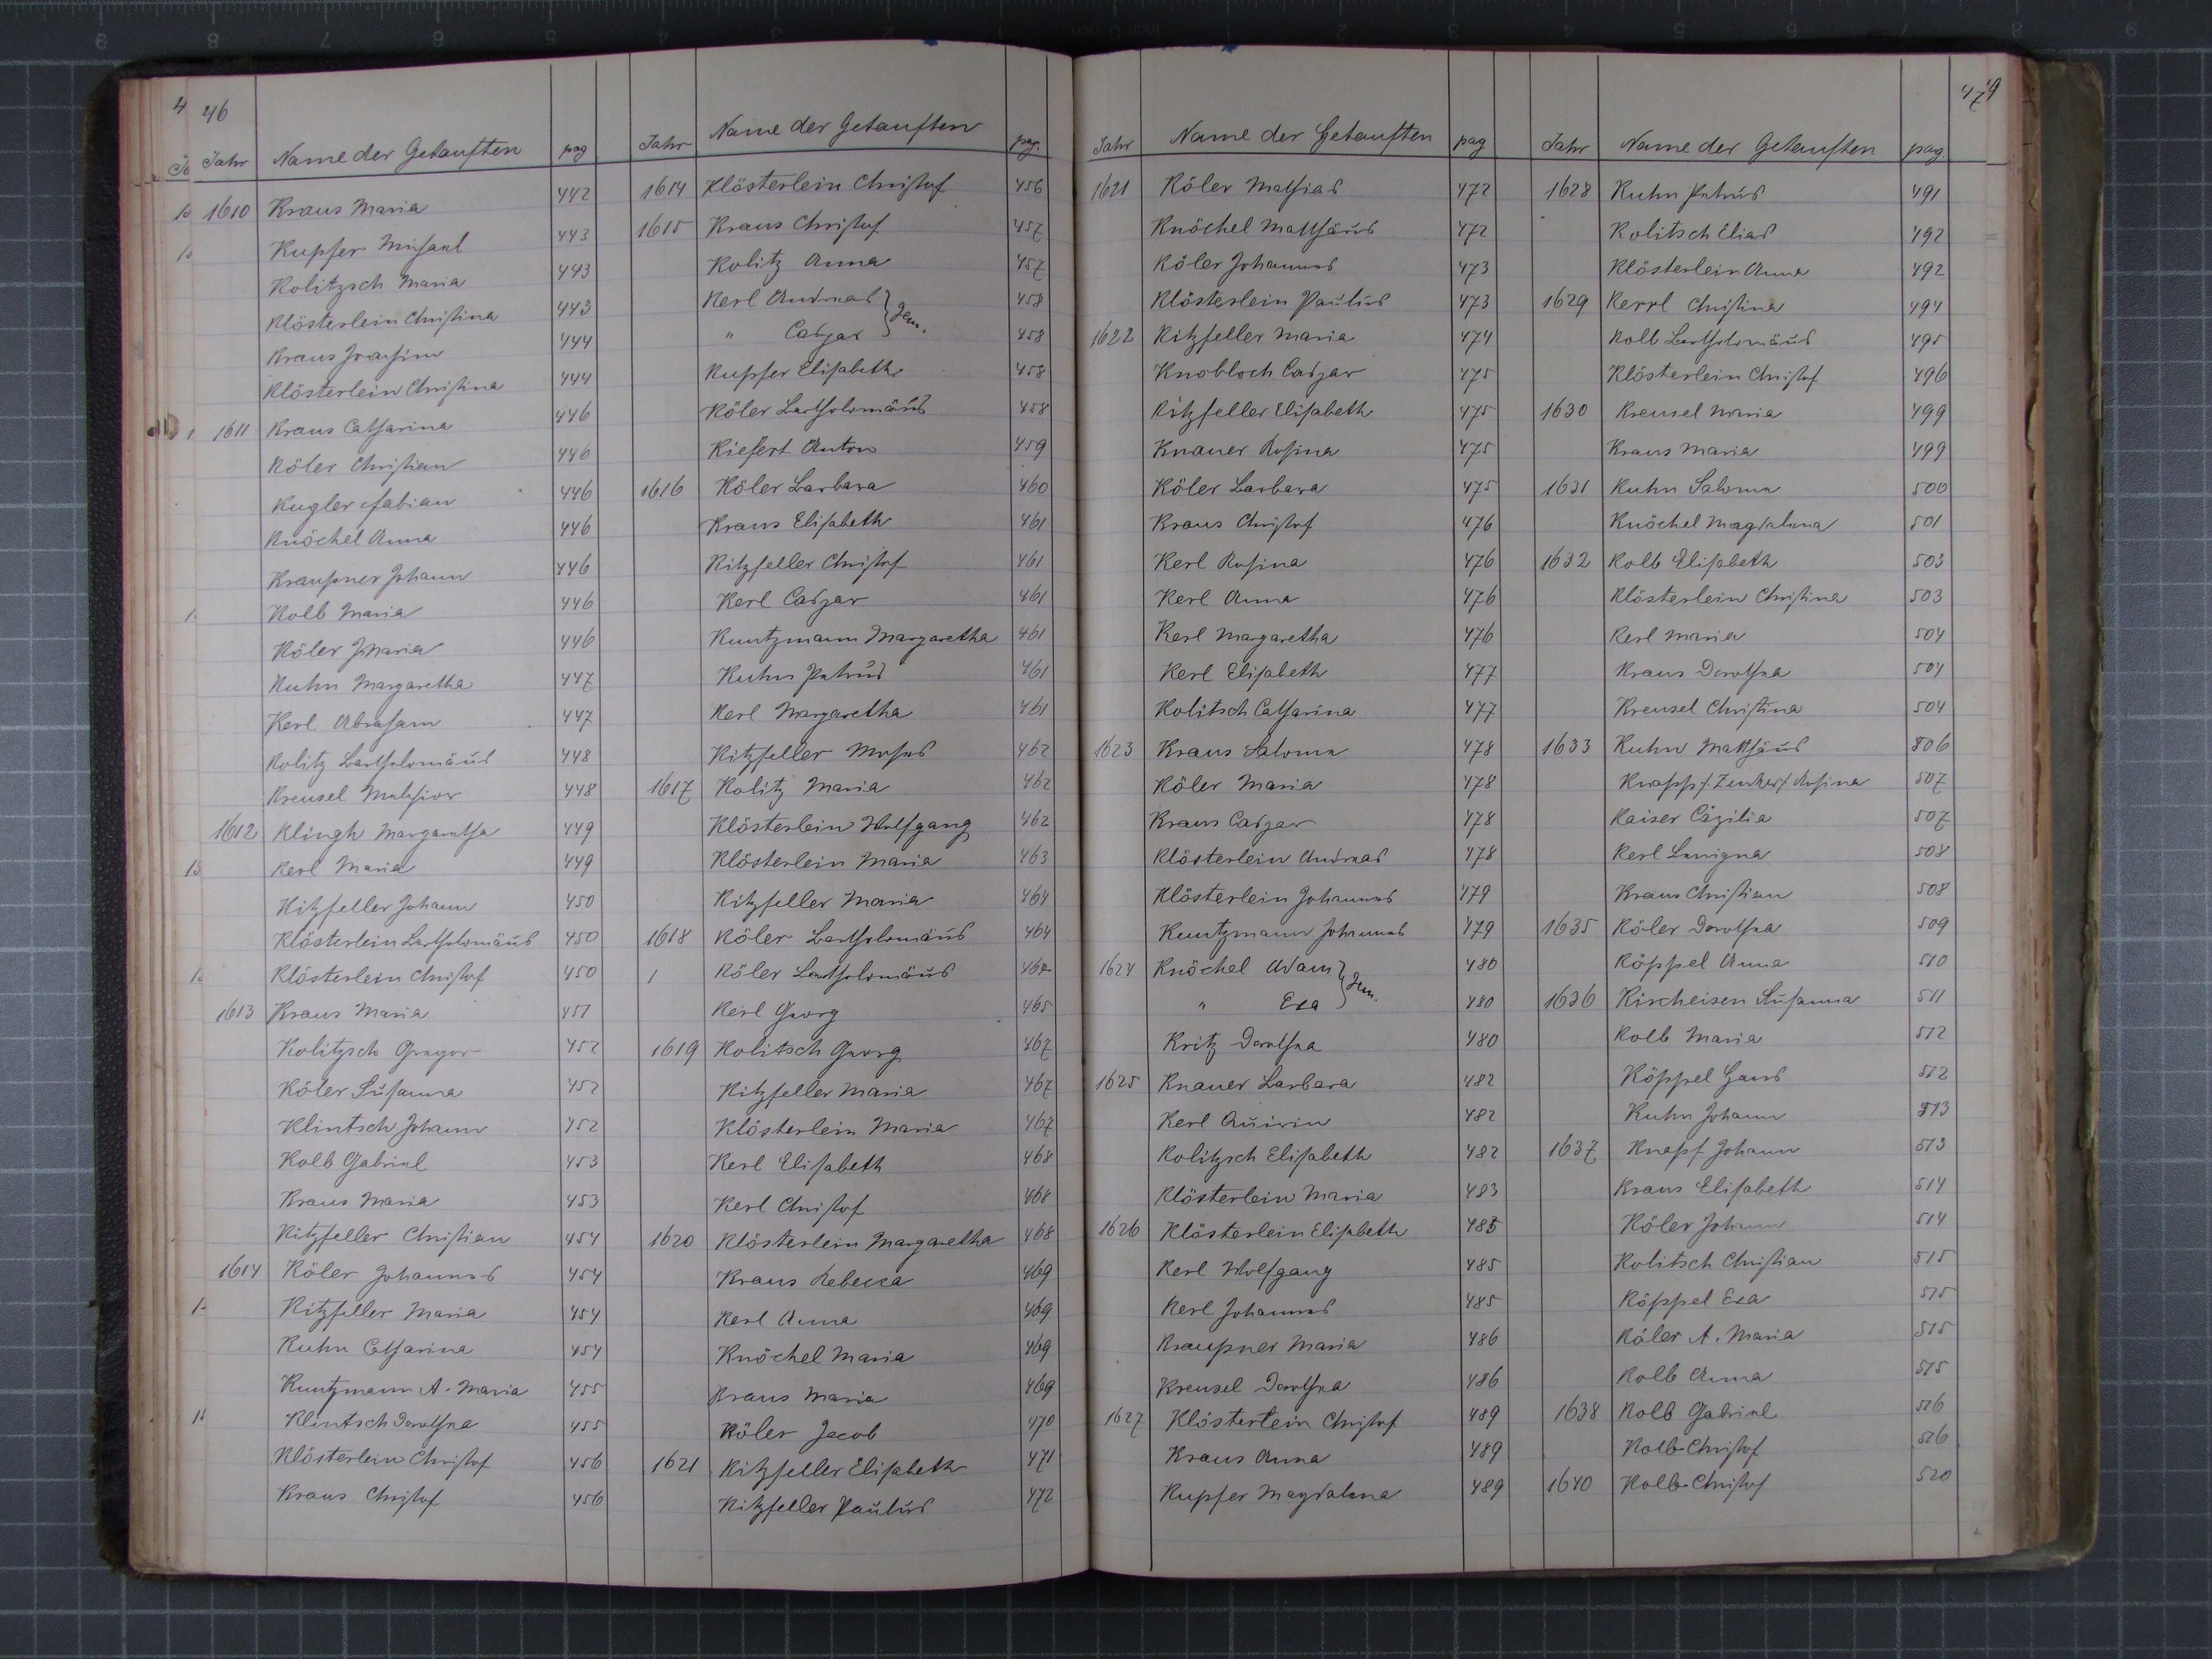 46
Jahr Name der Getauften pag
1610 Kraus Maria 442
Kupfer Michael 443
Kolitzsch Maria 443
Klösterlein Christina 443
Kraus Joachim 444
Klösterlein Christina 444
1611 Kraus Catharina 446
Köler Christian 446
Kugler Fabian 446
Knöchel Anna 446
Kraußner Johann 446
Kolb Maria 446
Köler Maria 446
Kuhn Margaretha 447
Kerl Abraham 447
Kolitz Bartholomäus 448
Kreusel Melchior 448
1612 Klingh Margaretha 449
Kerl Maria 449
Kitzfeller Johann 450
Klösterlein Bartholomäus 450
Klösterlein Christof 450
1613 Kraus Maria 451
Kolitzsch Gregor 452
Köler Susanna 452
Klintsch Johann 452
Kolb Gabriel 453
Kraus Maria 453
Kitzfeller Christian 454
1614 Köler Johannes 454
Kitzfeller Maria 454
Kuhn Catharina 454
Kuntzmann A. Maria 455
Klintsch Dorothea 455
Klösterlein Christof 456
Kraus Christof 456
Jahr Name der Getauften pag.
1614 Klösterlein Christof 456
1615 Kraus Christof 457
Kolitz Anna 457
Kerl Andreas } gem. 458
" Caspar 458
Kupfer Elisabeth 458
Köler Bartholomäus 458
Kiefert Anton 459
1616 Köler Barbara 460
Kraus Elisabeth 461
Kitzfeller Christof 461
Kerl Caspar 461
Kuntzmann Margaretha 461
Kuhn Petrus 461
Kerl Margaretha 461
Kitzfeller Moses 462
1617 Kolitz Maria 462
Klösterlein Wolfgang 462
Klösterlein Maria 463
Kitzfeller Maria 464
1618 Köler Bartholomäus 464
Köler Bartholomäus 464
Kerl Georg 465
1619 Kolitsch Georg 467
Kitzfeller Maria 467
Klösterlein Maria 467
Kerl Elisabeth 468
Kerl Christof 468
1620 Klösterlein Margaretha 468
Kraus Rebecca 469
Kerl Anna 469
Knöchel Maria 469
Kraus Maria 469
Köler Jacob 470
1621 Kitzfeller Elisabeth 471
Kitzfeller Paulus 472
Jahr Name der Getauften pag
1621 Köler Mathias 472
Knöchel Matthäus 472
Köler Johannes 473
Klösterlein Paulus 473
1622 Kitzfeller Maria 474
Knobloch Caspar 475
Kitzfeller Elisabeth 475
Knauer Rosina 475
Köler Barbara 475
Kraus Christof 476
Kerl Rosina 476
Kerl Anna 476
Kerl Margaretha 476
Kerl Elisabeth 477
Kolitsch Catharina 477
1623 Kraus Salome 478
Köler Maria 478
Kraus Caspar 478
Klösterlein Andreas 478
Klösterlein Johannes 479
Kuntzmann Johannes 479
1624 Knöchel Adam } gem. 480
" Eva 480
Kritz Dorothea 480
1625 Knauer Barbara 482
Kerl 482
Kolitzsch Elisabeth 482
Klösterlein Maria 483
1626 Klösterlein Elisabeth 485
Kerl Wolfgang 485
Kerl Johannes 485
Kraußner Maria 486
Kreusel Dorothea 486
1627 Klösterlein Christof 489
Kraus Anna 489
Kupfer Magdalena 489
479
Jahr Name der Getauften pag.
1628 Kuhn Petrus 491
Kolitsch Elias 492
Klösterlein Anna 492
1629 Kerrl Christina 494
Kolb Bartholomäus 495
Klösterlein Christof 496
1630 Kreusel Maria 499
Kraus Maria 499
1631 Kuhn Salome 500
Knöchel Magdalena 501
1632 Kolb Elisabeth 503
Klösterlein Christina 503
Kerl Maria 504
Kraus Dorothea 504
Kreusel Christina 504
1633 Kuhn Matthäus 506
Knapp /: Zenker / Rosina 507
Kaiser Cäzilia 507
Kerl Benigna 508
Kraus Christian 508
1635 Köler Dorothea 509
Köppel Anna 510
1636 Kircheisen Susanna 511
Kolb Maria 512
Köppel Hans 512
Kuhn Johann 513
1637 Knapf Johann 513
Kraus Elisabeth 514
Köler Johann 514
Kolitsch Christian 515
Köppel Eva 515
Köler A. Maria 515
Kolb Anna 515
1638 Kolb Gabriel 516
Kolb Christof 516
1640 Kolb Christof 520